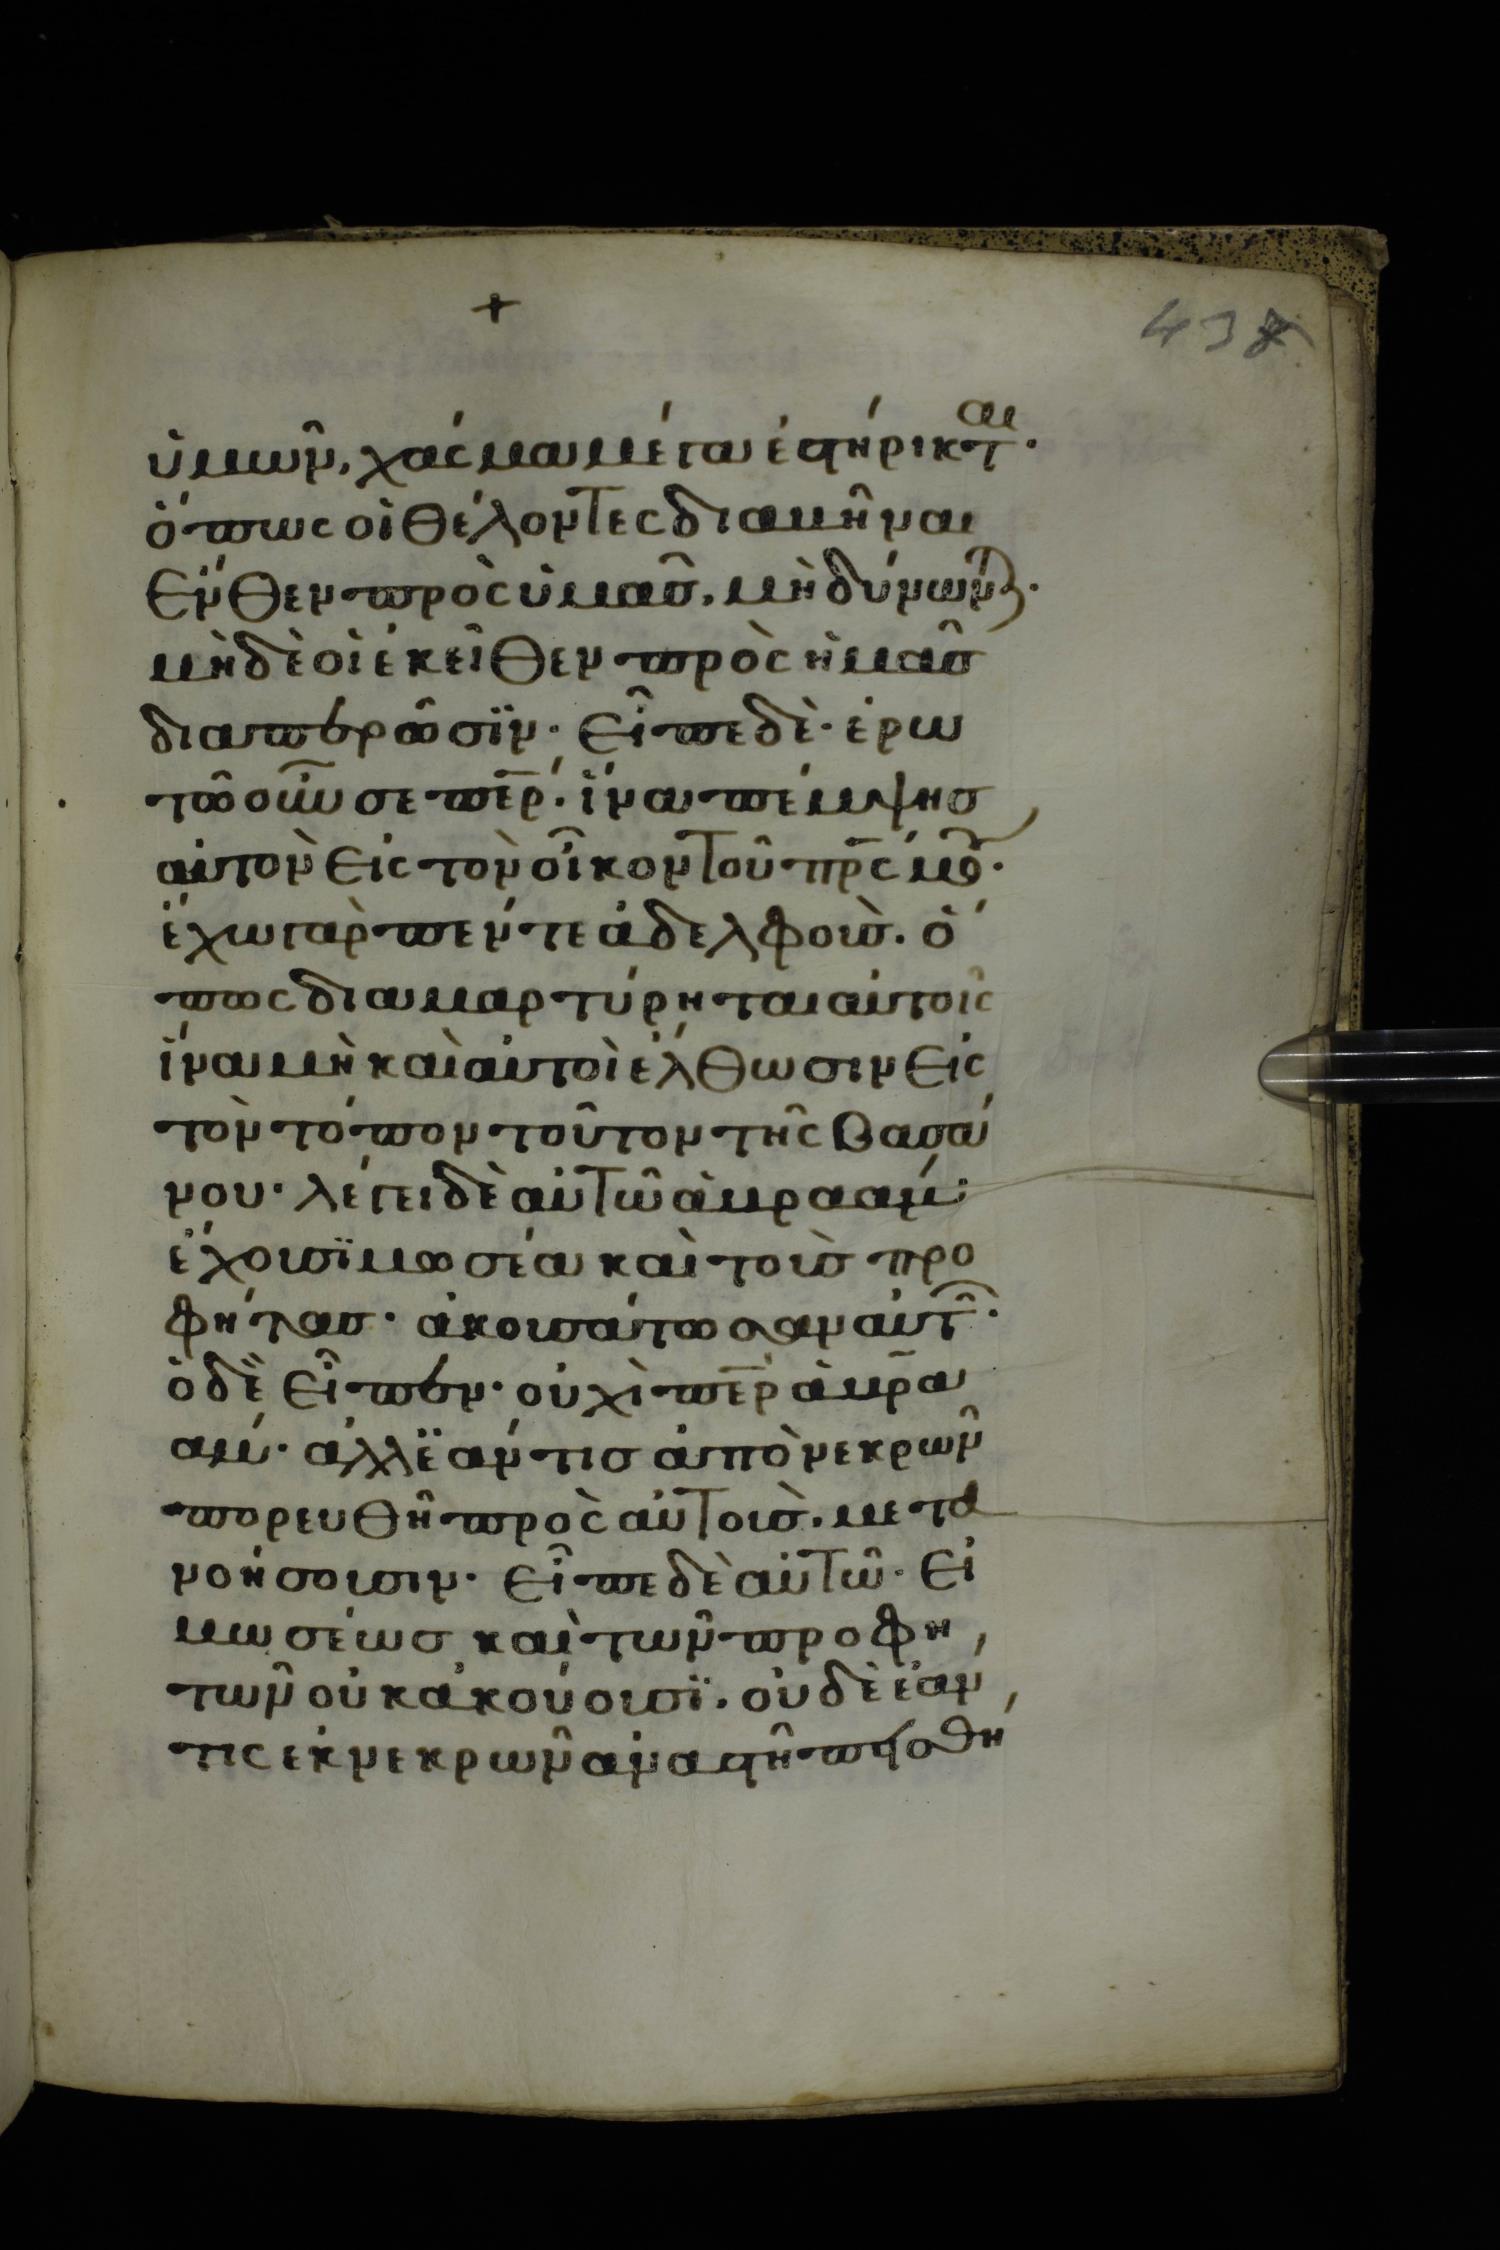 +
438
ὑμῶν, χάσμα μέγα ἐστήρικται·
ὅπως οἱ θέλοντες διαβῆναι
ἔνθεν πρὸς ὑμᾶς, μὴ δύνων·
μηδὲ οἱ ἐκεῖθεν πρὸς ἡμᾶς
διαπερῶσϊν· εἶπε δὲ· ἐρω
τῶ οὖν σε περ· ἵνα πέμψησ
αὐτὸν εἰς τὸν οἶκον τοῦ πρς μου·
ἔχω γὰρ πέντε ἀδελφοὺσ· ὅ
πως διαμαρτύρηται αὐτοῖς
ἵνα μὴ καὶ αὐτοὶ ἔλθωσιν εἰς
τὸν τόπον τοῦτον τῆς βασά
νου· λέγει δὲ αὐτῶ ἀβραάμ·
ἔχουσϊ μωσέα καὶ τοὺσ προ
φήτασ· ἀκουσάτωσαν αὐτ·
ὁ δὲ εἶπεν· οὐχὶ περ ἀβρα
άμ· ἀλλ ἐάν τισ ἀπὸ νεκρῶν
πορευθῆ πρὸς αὐτοὺσ· μετα
νοήσουσιν· εἶπε δὲ αὐτῶ· εἰ
μωσέωσ καὶ τῶν προφη
τῶν οὐκ ἀκούουσϊ, οὐδὲ ἐάν
τις ἐκ νεκρῶν ἀναστῆ πεισθή